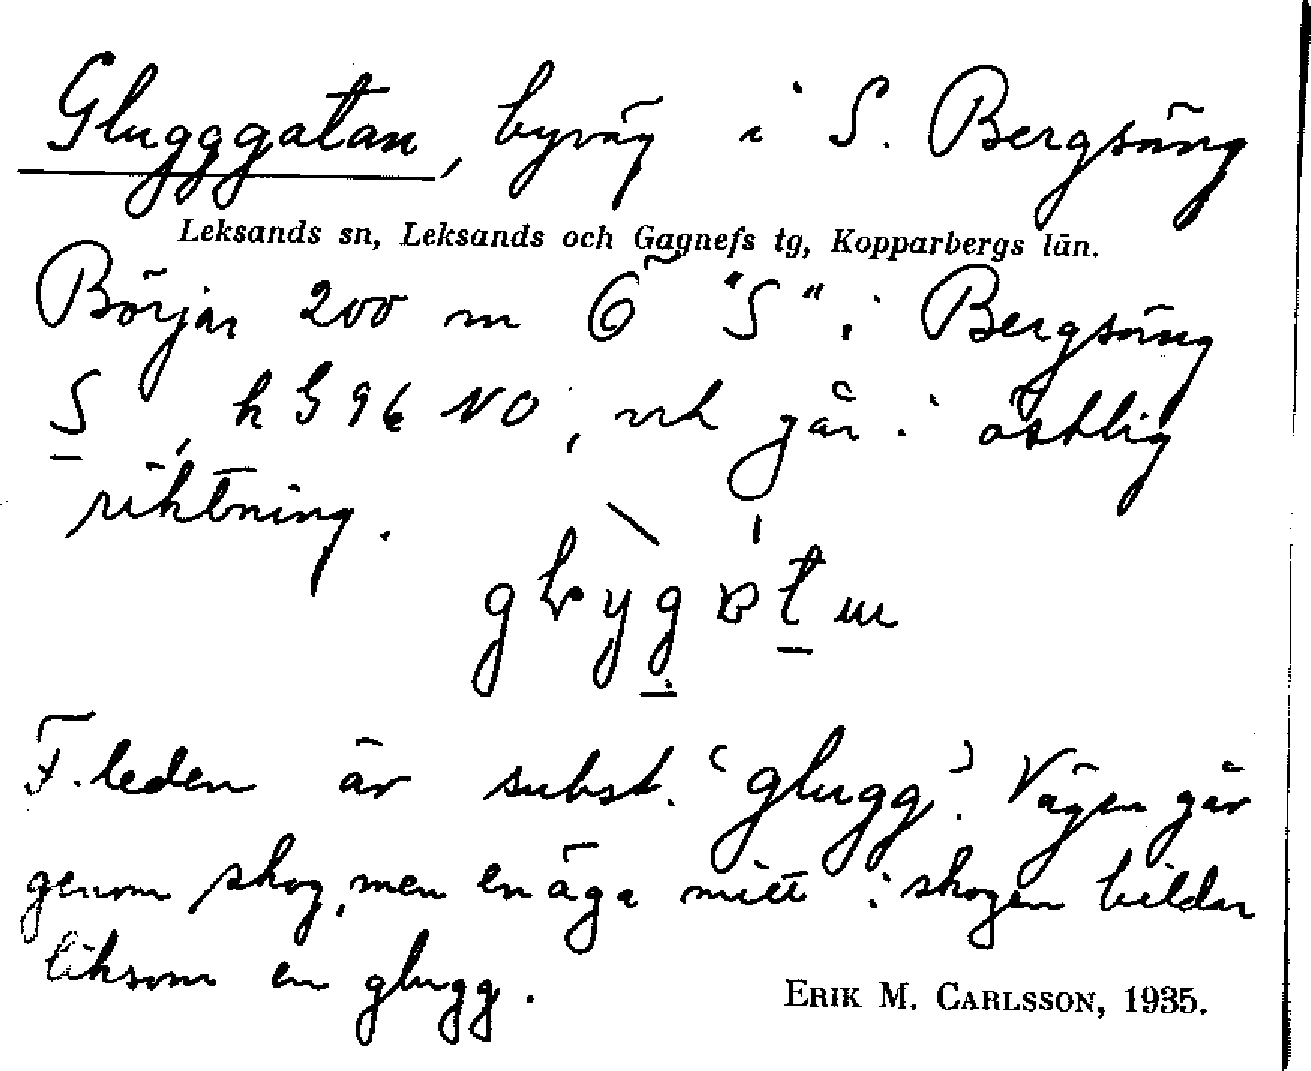 Glugggatan, byväg i S. Bergsäng
Leksands sn, Leksands och Gagnefs tg, Kopparbergs län.
Börjar 200 m Ö "S" i Bergsäng
S, k G 96 NO, och går i östlig
riktning.
F.leden är subst. 'glugg'. Vägen går
genom skog, men en äga mitt i skogen bildar
liksom en glugg.
ERIK M. CARLSSON, 1935.